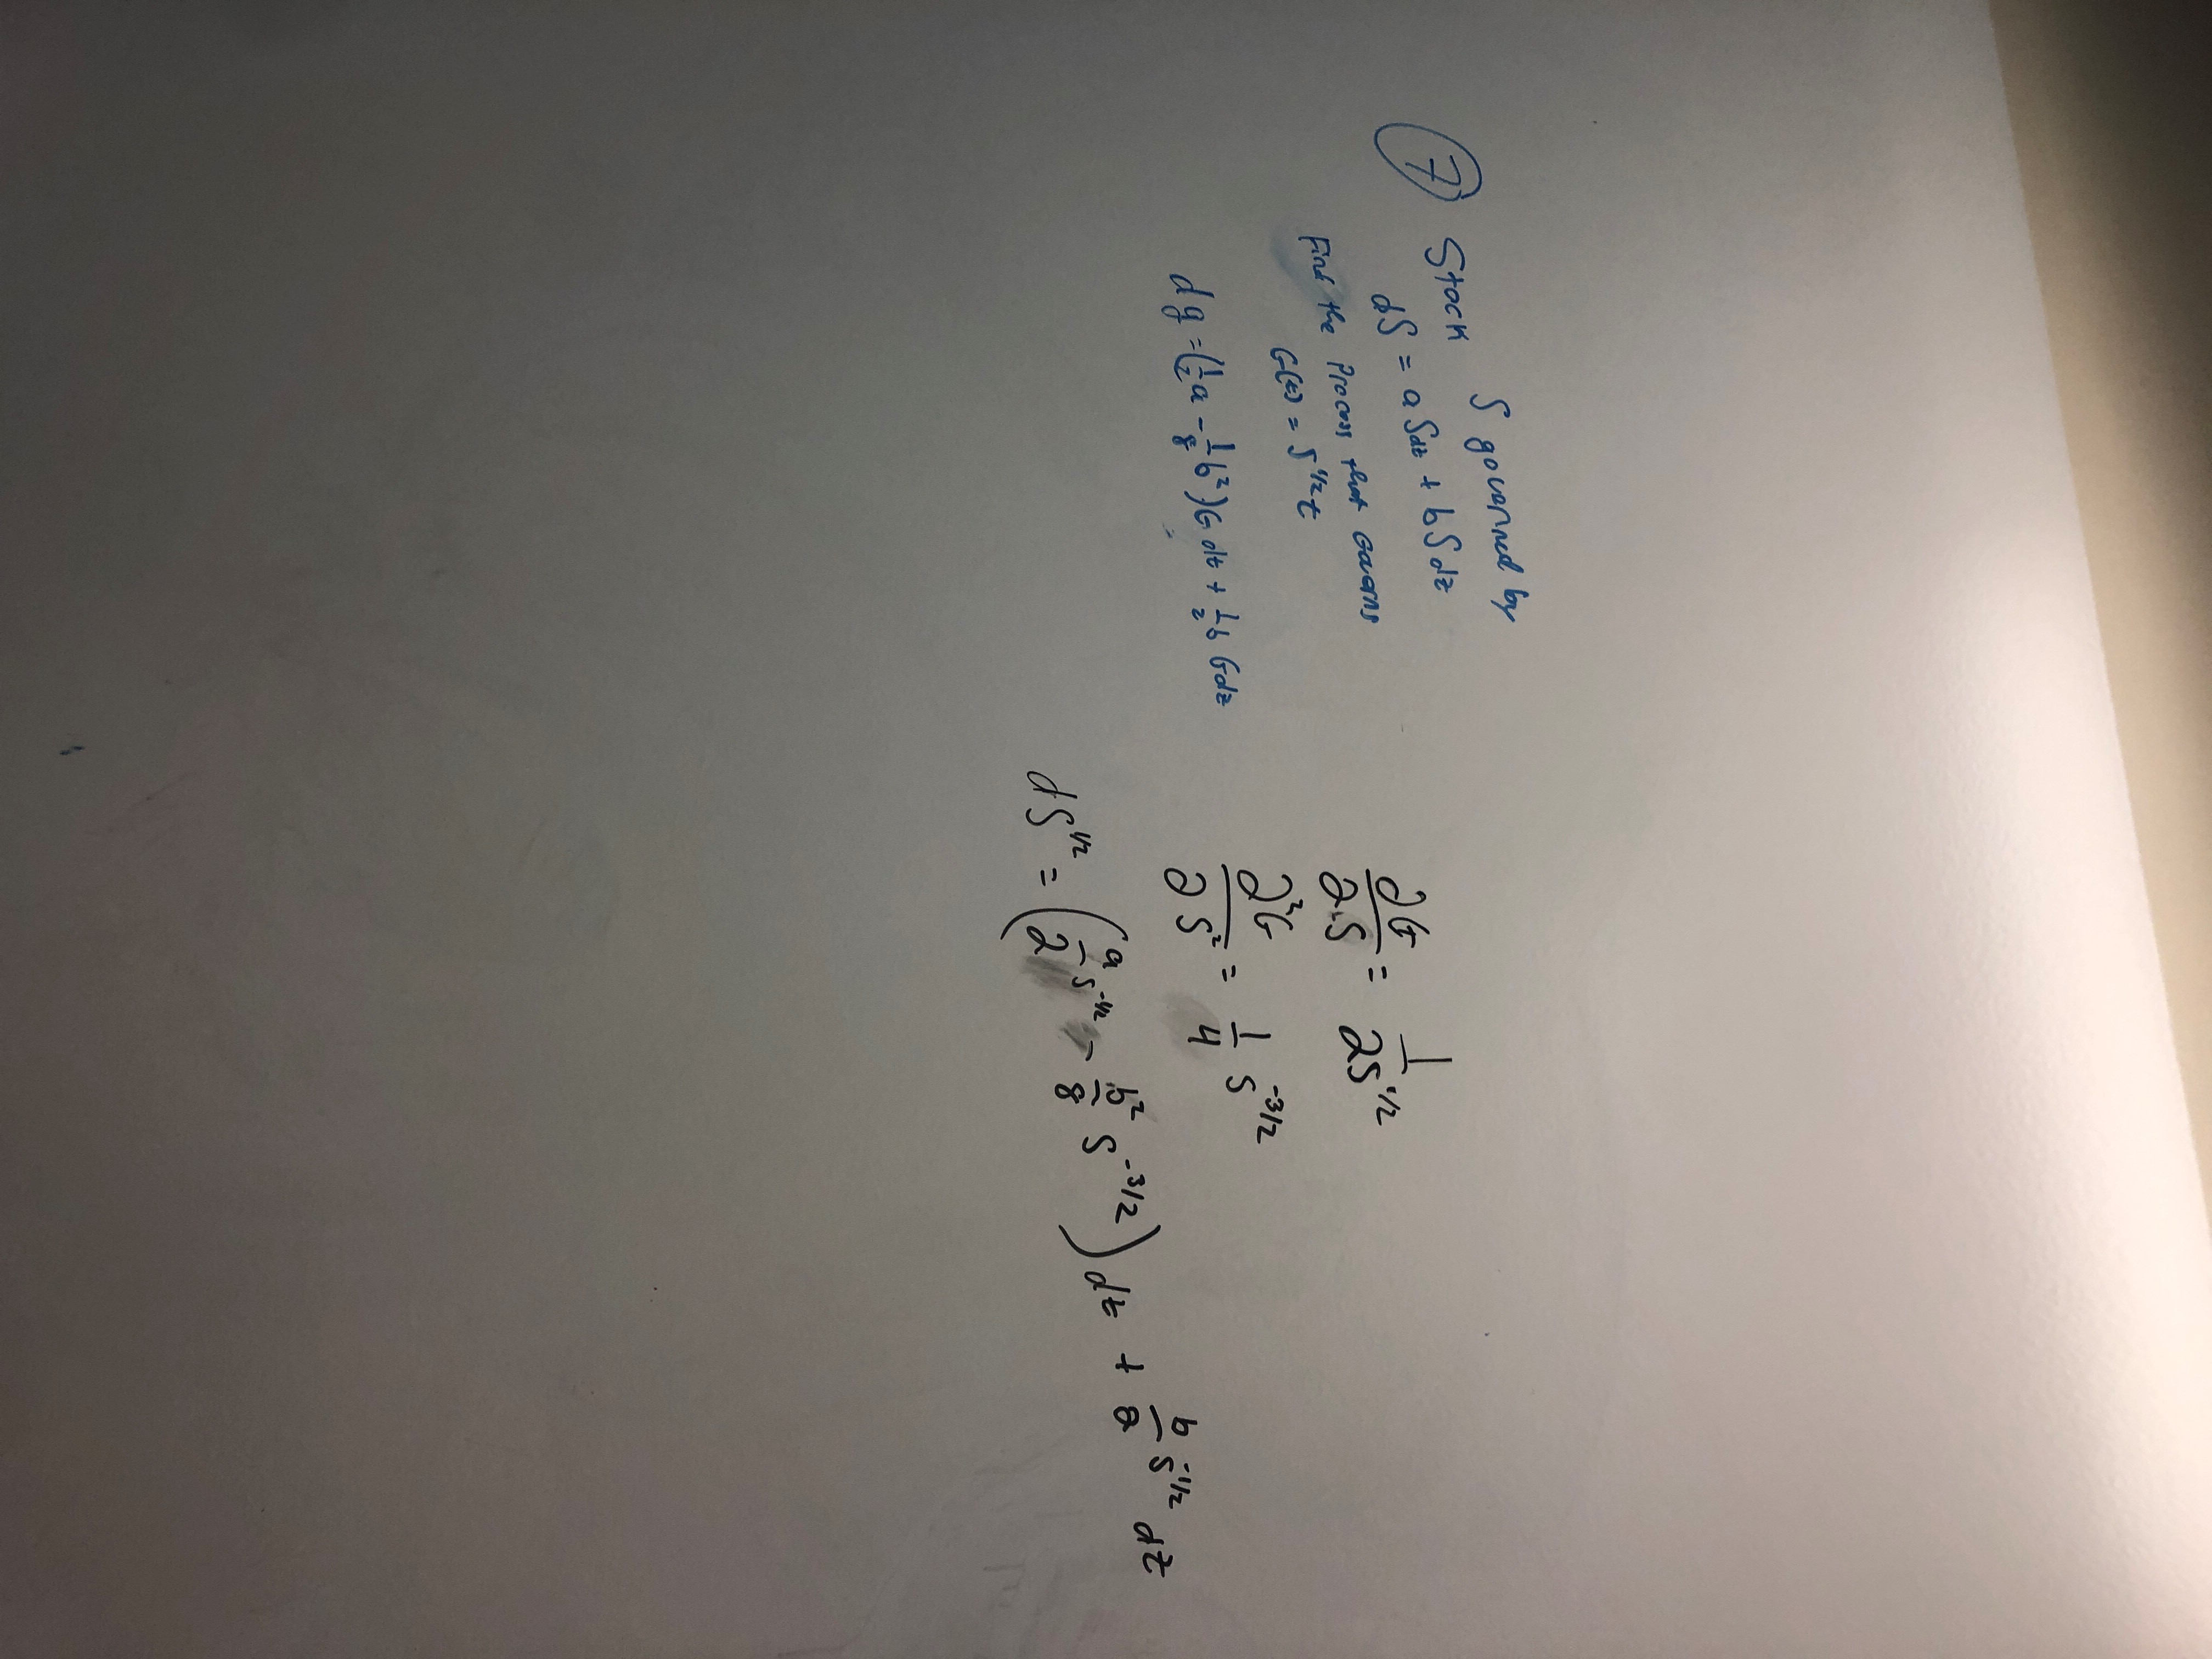 7 Stock S governed by
dS = a Sdt + b S dz
Find the Process that Governs
G(t) = S^1/2 t
dg = (1/2 a - 1/8 b²) G dt + 1/2 b G dz
∂G/∂S = 1/2S^1/2
∂²G/∂S² = 1/4 S^-3/2
dS^1/2 = (a/2 S^-1/2 - b²/8 S^-3/2) dt + b/2 S^-1/2 dz